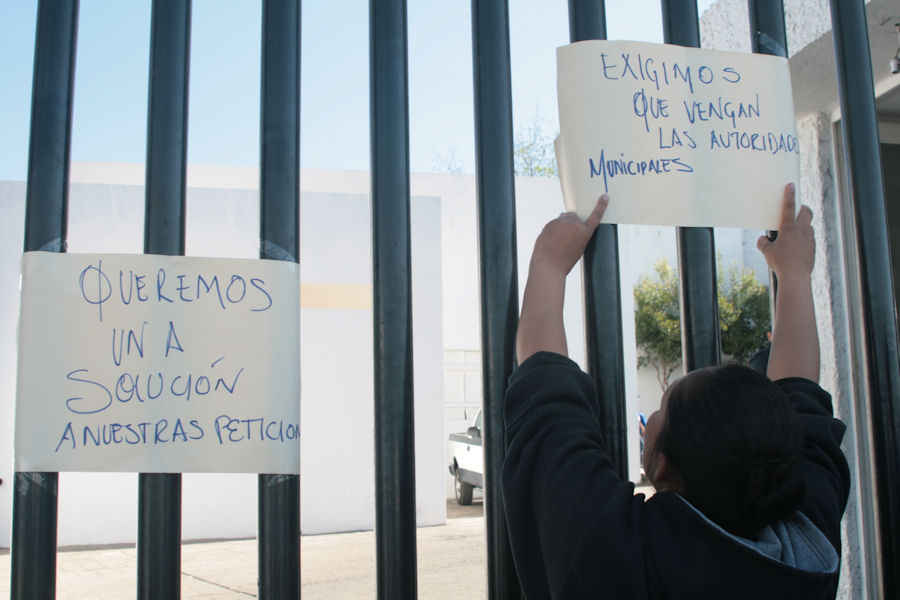 QUEREMOS
UN A
SOLUCIÓN
A NUESTRAS PETICION
EXIGIMOS
QUE VENGAN
LAS AUTORIDADE
MUNICIPALES